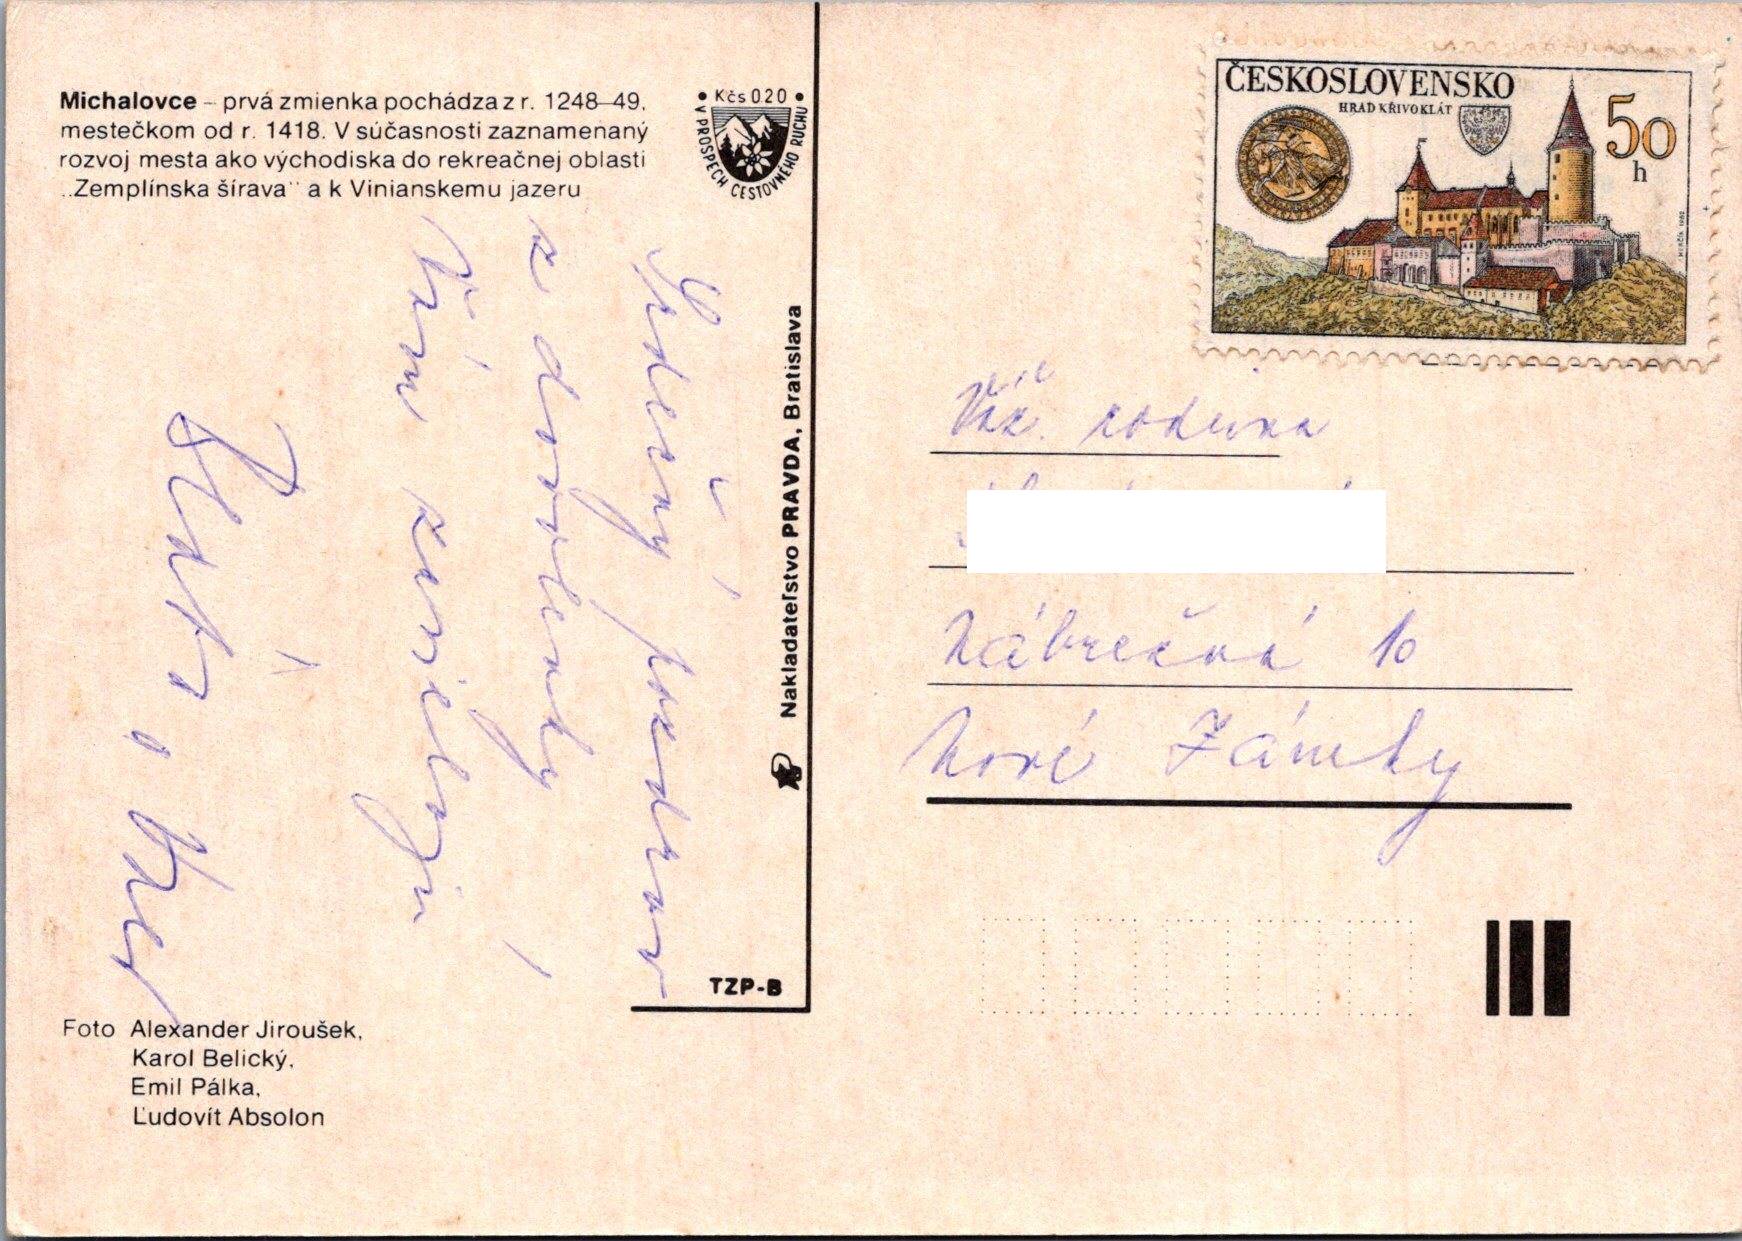 Michalovce – prvá zmienka pochádza z r. 1248–49,
mestečkom od r. 1418. V súčasnosti zaznamenaný
rozvoj mesta ako východiska do rekreačnej oblasti
„Zemplínska šírava“ a k Vinianskemu jazeru
• Kčs 020 •
V PROSPECH CESTOVNÉHO RUCHU
Srdečný pozdrav
z dovolenky
Vám
Nakladateľstvo PRAVDA, Bratislava
TZP-B
Foto Alexander Jiroušek,
Karol Belický,
Emil Pálka,
Ľudovít Absolon
ČESKOSLOVENSKO
HRAD KŘIVOKLÁT
50
h
Váž. rodina
Nábrežná 10
Nové Zámky